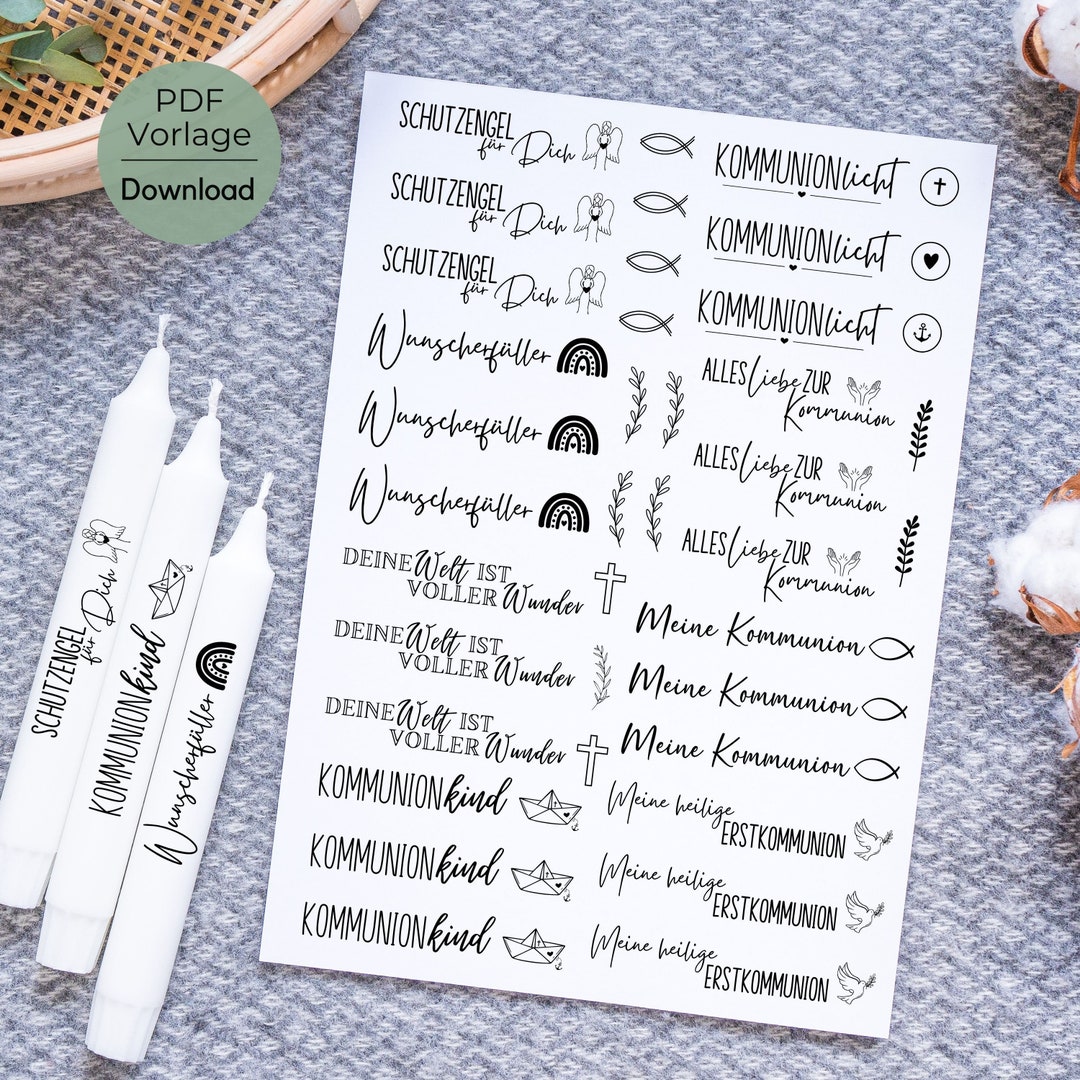 PDF
Vorlage
Download
SCHUTZENGEL
für Dich
SCHUTZENGEL
für Dich
SCHUTZENGEL
für Dich
Wunscherfüller
Wunscherfüller
Wunscherfüller
DEINE Welt IST
VOLLER Wunder
DEINE Welt IST
VOLLER Wunder
DEINE Welt IST
VOLLER Wunder
KOMMUNIONkind
KOMMUNIONkind
KOMMUNIONkind
KOMMUNIONlicht
KOMMUNIONlicht
KOMMUNIONlicht
ALLES Liebe ZUR
Kommunion
ALLES Liebe ZUR
Kommunion
ALLES Liebe ZUR
Kommunion
Meine Kommunion
Meine Kommunion
Meine Kommunion
Meine heilige
ERSTKOMMUNION
Meine heilige
ERSTKOMMUNION
Meine heilige
ERSTKOMMUNION
SCHUTZENGEL
für Dich
KOMMUNIONkind
Wunscherfüller